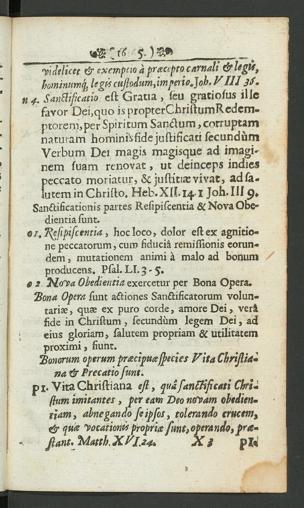 ( 165. )
videlicet & exemptio à præcepto carnali & legis,
hominumq́, legis custodum, imperio. Joh. VIII 36.
n 4. Sanctificatio est Gratia, seu gratiosus ille
favor Dei, quo is propter Christum Redem-
ptorem, per Spiritum Sanctum, corruptam
naturam hominis fide justificati secundùm
Verbum Dei magis magisque ad imagi-
nem suam renovat, ut deinceps indies
peccato moriatur, & justitiæ vivat, ad sa-
lutem in Christo. Heb. XII. 14 1 Joh. III 9.
Sanctificationis partes Resipiscentia & Nova Obe-
dientia sunt.
o 1. Resipiscentia, hoc loco, dolor est ex agnitio-
ne peccatorum, cum fiduciâ remissionis eorun-
dem, mutationem animi à malo ad bonum
producens. Psal. LI. 3-5.
o 2. Nova Obedientia exercetur per Bona Opera.
Bona Opera sunt actiones Sanctificatorum volun-
tariæ, quæ ex puro corde, amore Dei, verâ
fide in Christum, secundùm legem Dei, ad
eius gloriam, salutem propriam & utilitatem
proximi, fiunt.
Bonorum operum præcipuæ species Vita Christia-
na & Precatio sunt.
p 1. Vita Christiana est, quâ sanctificati Chri-
stum imitantes, per eam Deo novam obedien-
tiam, abnegando se ipsos, tolerando crucem,
& quæ vocationis propriæ sunt, operando, præ-
stant. Matth. XVI. 24. X 3 p 1.